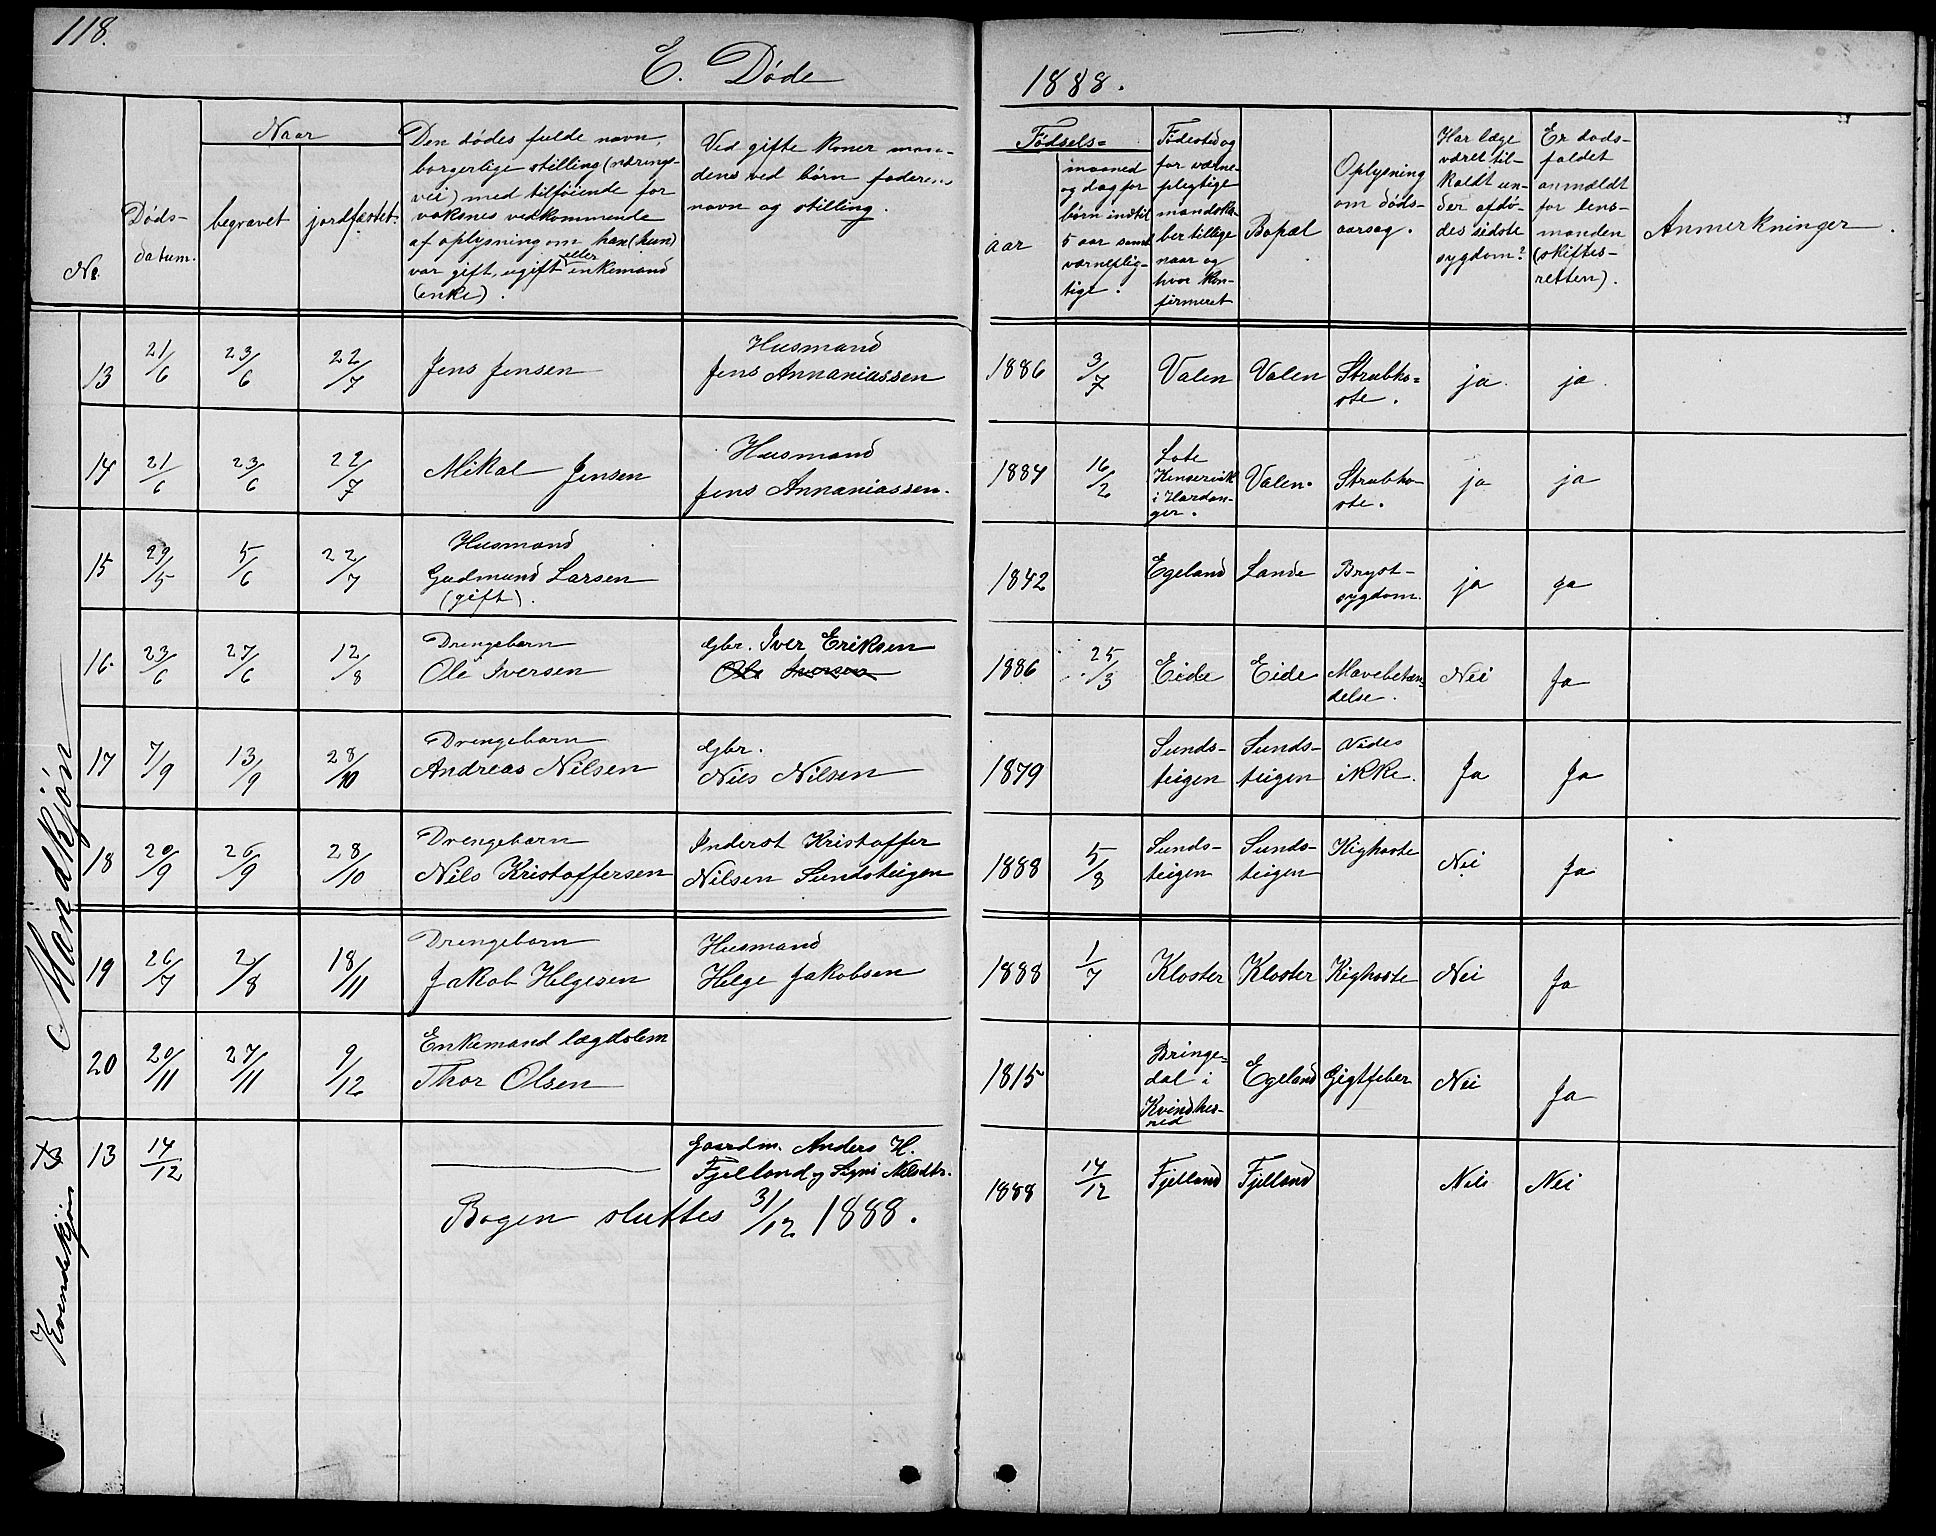 118.
E. Døde
1888.
No.
Døds-
datum.
Naar
begravet
jordfæstet.
Den dødes fulde navn,
borgerlige stilling (nærings-
vei) med tilføiende for
voksnes vedkommende
af oplysning om han (hun)
var gift, ugift eller enkemand
(enke).
Ved gifte koner man-
dens ved børn faderens
navn og stilling.
Fødsels=
aar
maaned
og dag for
børn indtil
5 aar samt
værneplig-
tige.
Fødested og
for værne-
plegtige
mandska-
ber tillige
naar og
hvor kon-
firmeret
Bopæl
Oplysning
om døds-
aarsag.
Har læge
været til-
kaldt un-
der afdø-
des sidste
sygdom?
Er døds-
faldet
anmældt
for lens-
manden
(skiftes-
retten).
Anmerkninger.
Mandkjøn
13 21/6 23/6 22/7 Jens Jensen Husmand
Jens Annaniassen 1886 3/7 Valen Valen Strubho=
ste. ja. ja.
14 21/6 23/6 22/7 Mikal Jensen Husmand
Jens Annaniassen. 1884 16/2 Lote
Kinservik
i Hardan-
ger. Valen. Strubho-
ste. ja ja
15 29/5 5/6 22/7 Husmand
Gudmund Larsen
(gift). 1842 Egeland Lande Bryst-
sygdom. ja ja
16. 23/6 27/6 12/8 Drengebarn
Ole Iversen Gbr. Iver Eriksen
Ole Iversen 1886 25/3 Eide Eide Mavebetæn=
delse. Nei Ja
17 7/9 13/9 28/10 Drengebarn
Andreas Nilsen Gbr.
Nils Nilsen 1879 Sunds-
teigen Sunds-
teigen Vides
ikke. Ja Ja
18 20/9 26/9 28/10 Drengebarn
Nils Kristoffersen Inderst Kristoffer
Nilsen Sundsteigen 1888 5/8 Sunds-
teigen Sunds-
teigen Kighoste Nei Ja
19 26/7 2/8 18/11 Drengebarn
Jakob Helgesen Husmand
Helge Jakobsen 1888 1/7 Kloster Kloster Kighoste Nei Ja
20 20/11 27/11 9/12 Enkemand lægdslem
Thor Olsen 1815 Bringe=
dal i
Kvindher-
red Egeland Gigtfeber Nei Ja
Kvindekjøn
13 13 14/12 Gaardm. Anders H.
Fjelland og Signi Nilsdtr. 1888 14/12 Fjelland Fjelland Nei Nei
Bogen sluttes 31/12 1888.